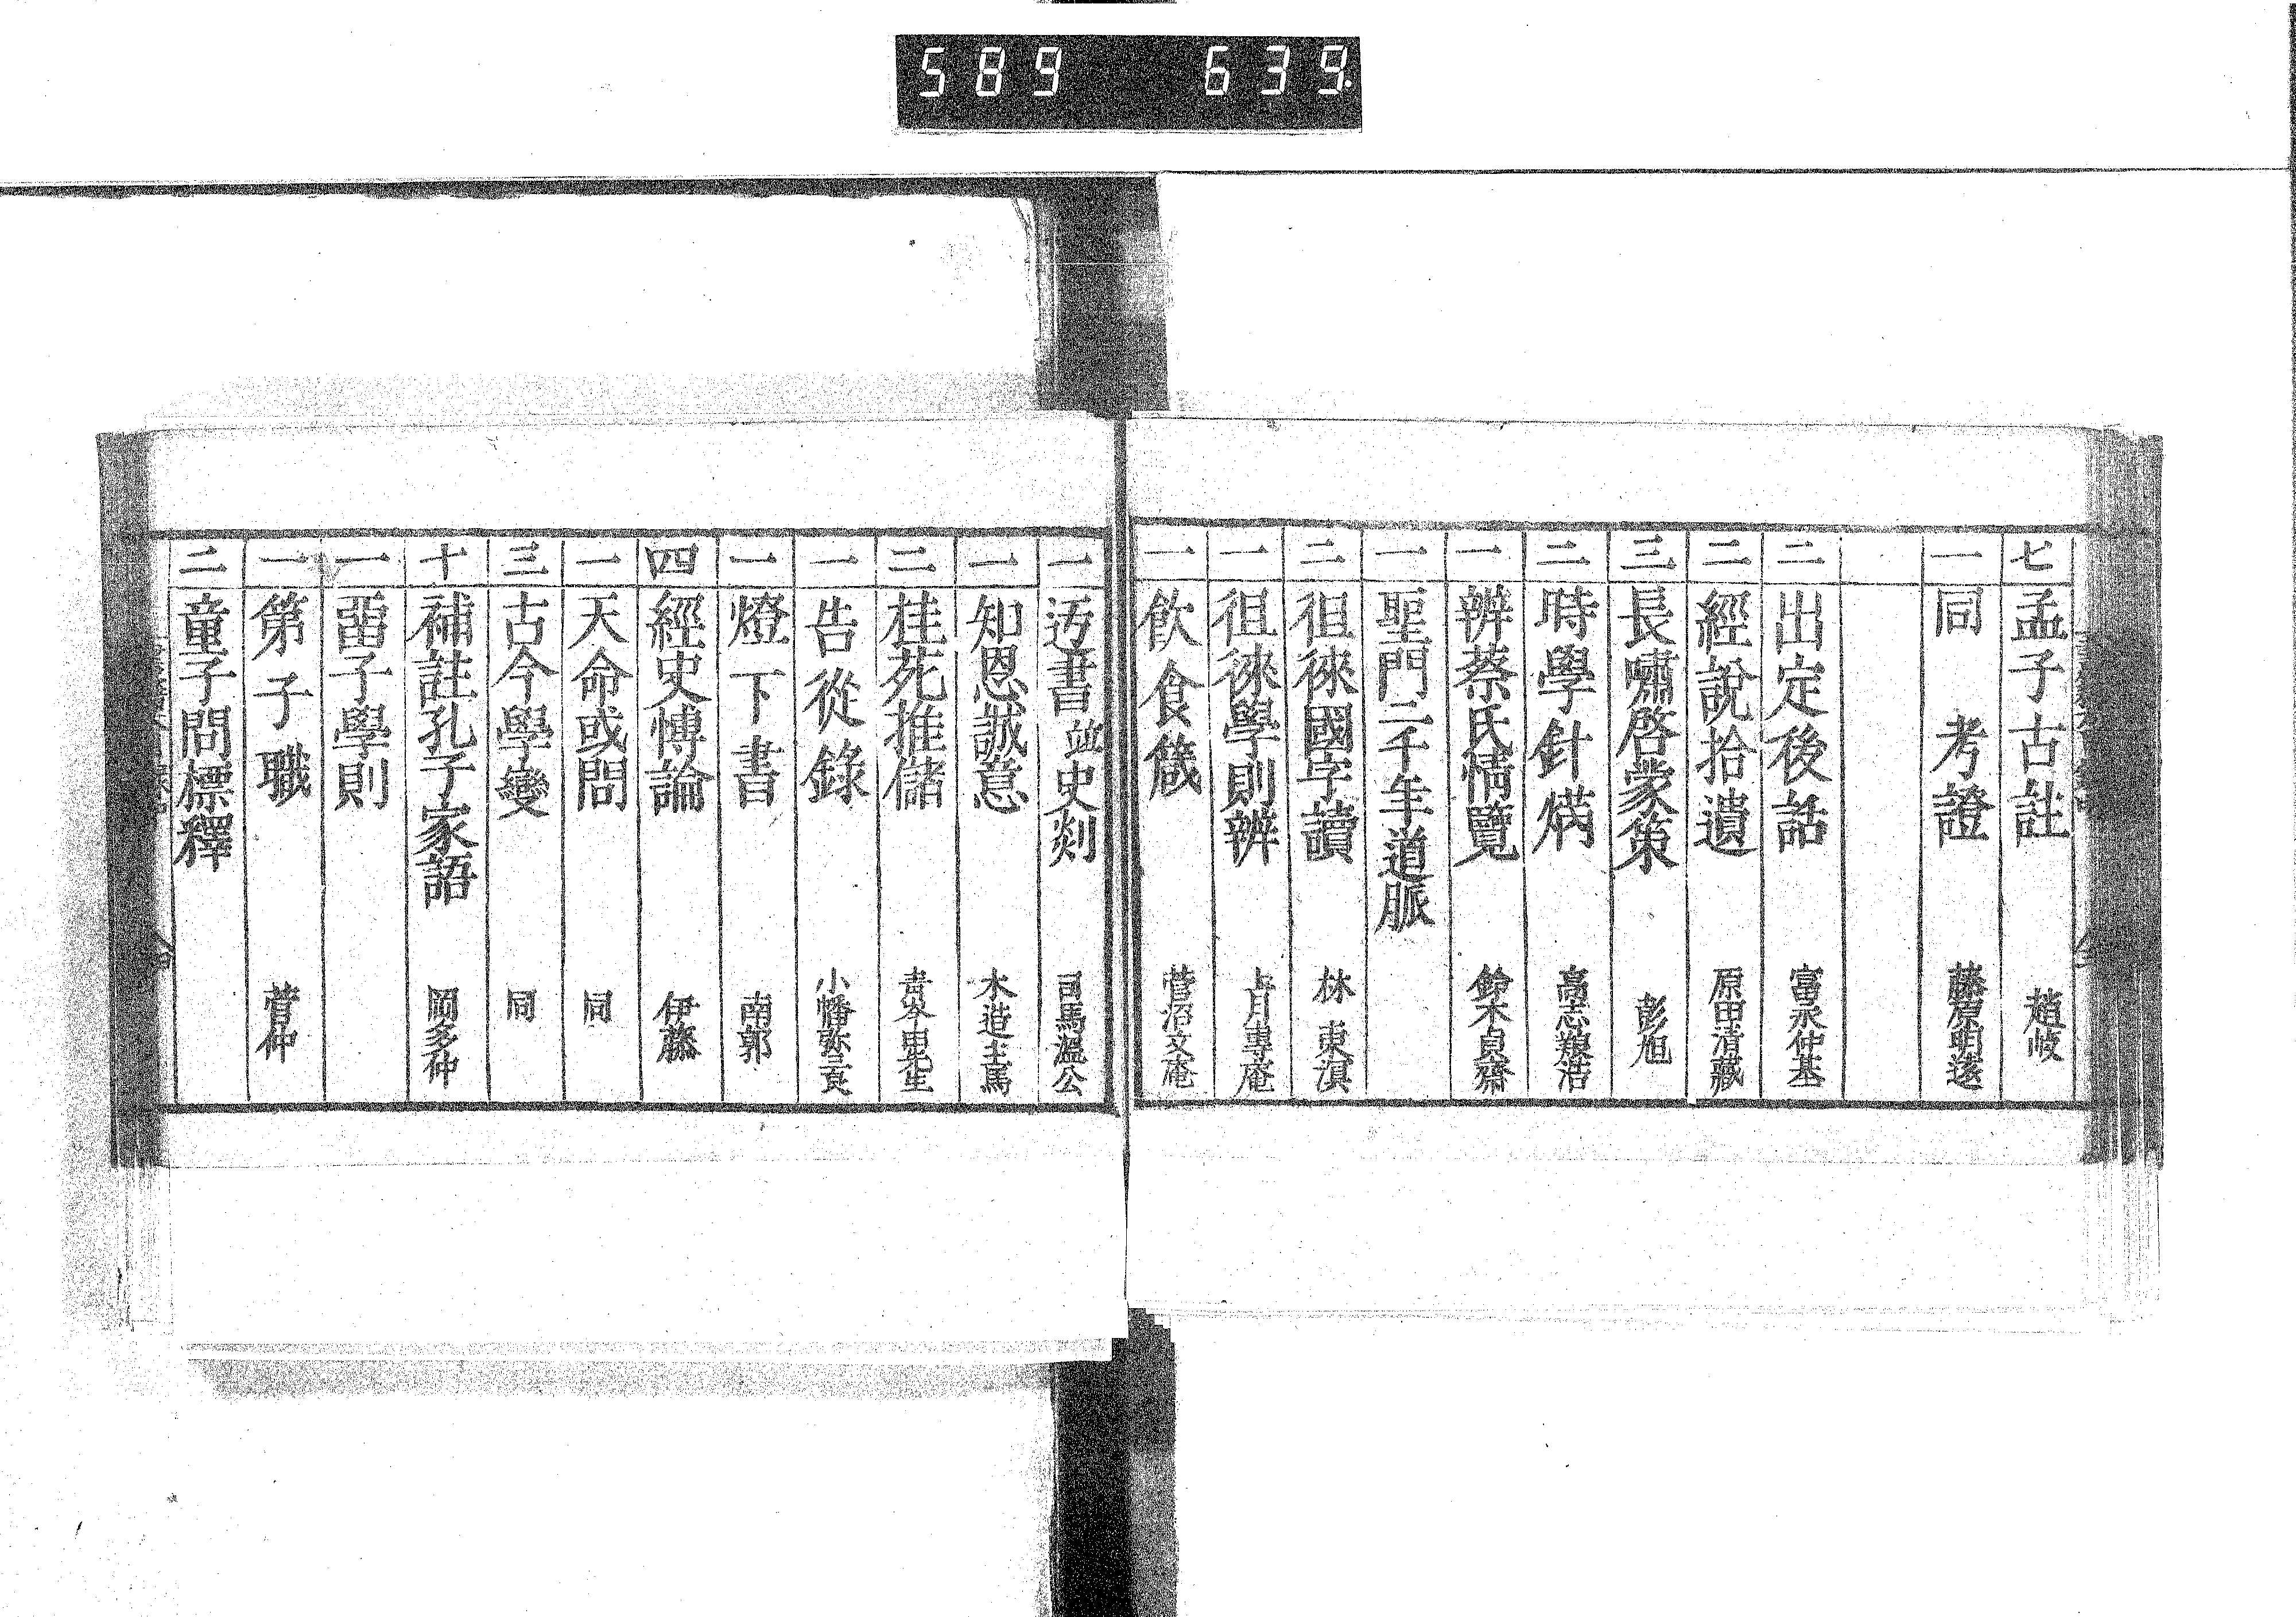 589 639.
七 孟子古註 趙岐
一 同考證 藤原明遠
二 出定後話 富永仲基
二 經說拾遺 原田清藏
三 長嘯啓蒙策 彭旭
二 時學針焫 高志養浩
一 辨蔡氏情覽 鈴木貞齋
一 聖門二千年道脈
二 徂徠國字牘 林東溟
一 徂徠學則辨 上月專庵
一 飲食箴 菅沼文庵
一 迃書並史剡 司馬溫公
一 知恩誠意 木造主馬
二 桂苑推儲
一 告從錄 小幡弥
一 燈下書 南郭
四 經史博論 伊藤
一 天命或問 同
三 古今學變 同
十 補註孔子家語 岡多仲
一 畱子學則
一 第子職 菅仲
二 童子問標釋